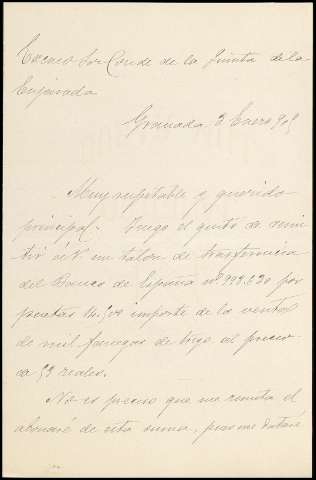 Excmo Sor Conde de la Quinta de la
Enjarada
Granada 3 Enero 905
Muy respetable y querido
principal. Tengo el gusto de remi
tir á V. un talon de trasferencia
del Banco de España nº 998.630 por
pesetas 14.500 importe de la venta
de mil fanegas de trigo al precio
de 58 reales.
No es preciso que me remita el
abonaré de esta suma, pues me dataré